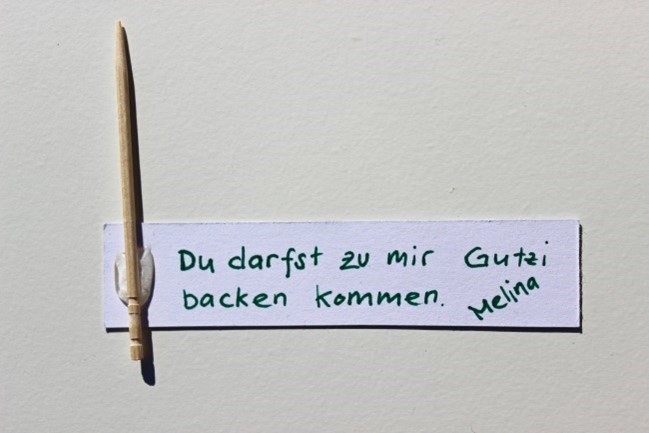 Du darfst zu mir Gutzi
backen kommen.
Melina